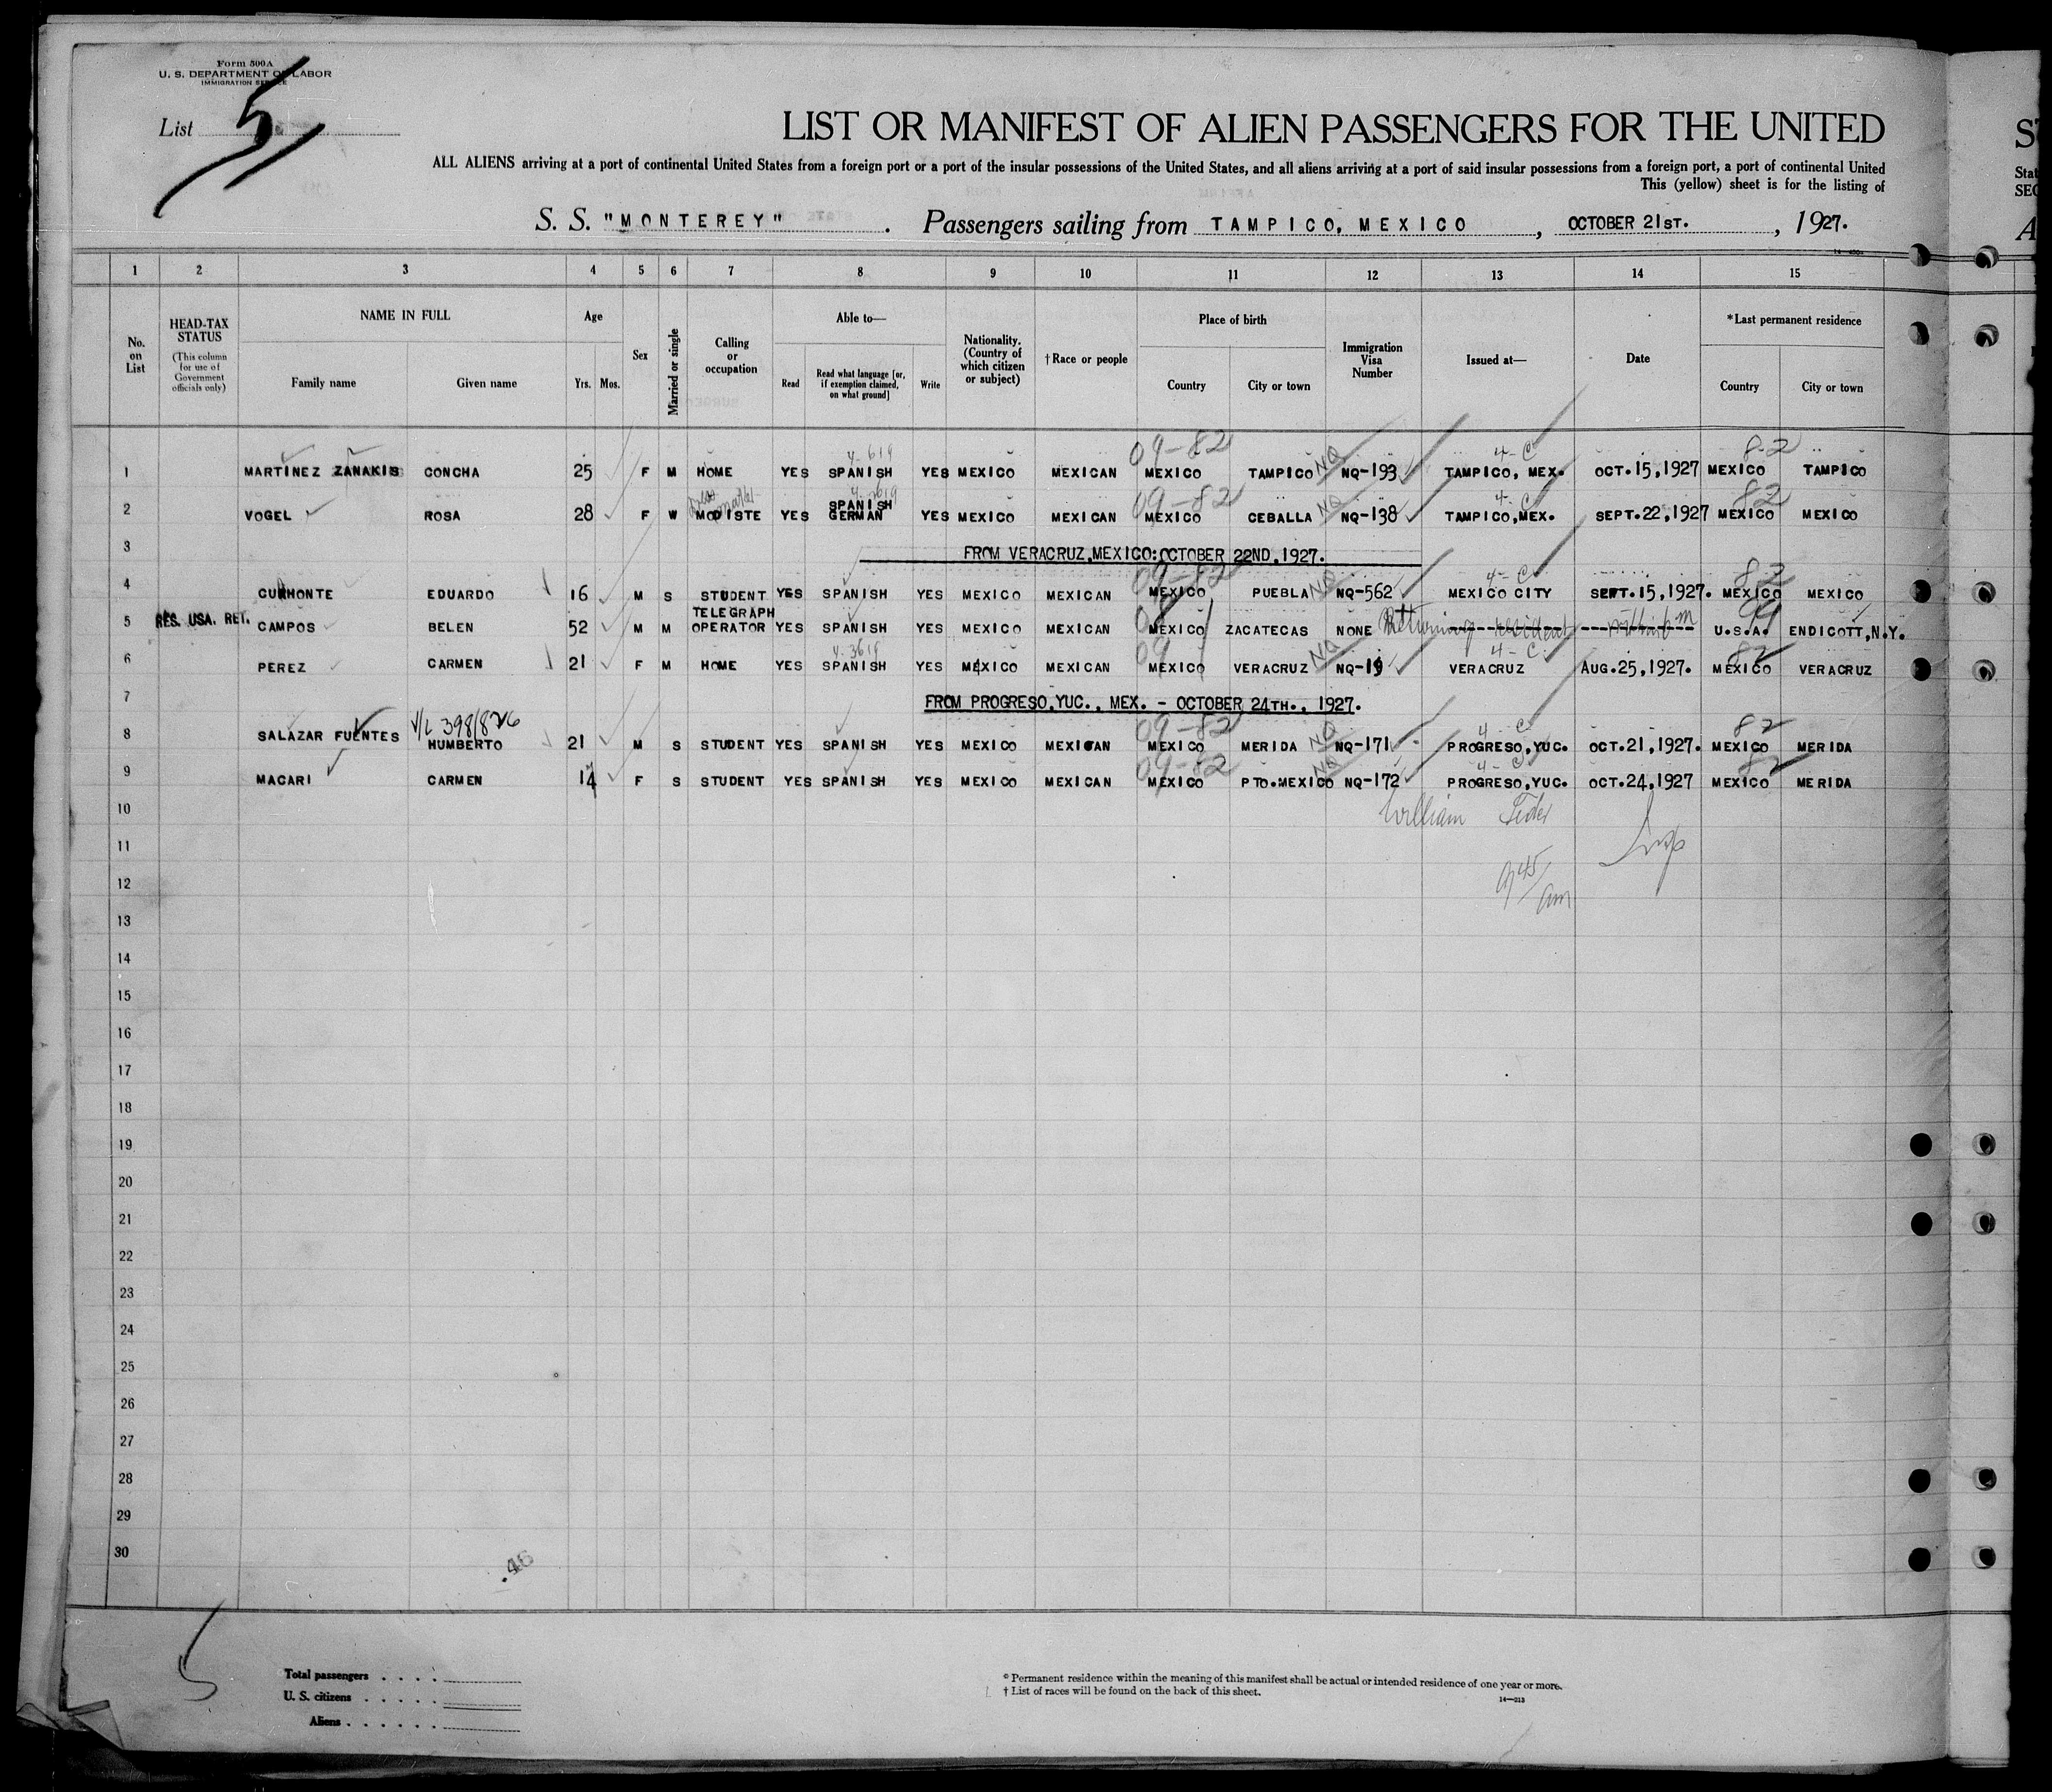 Form 500A
U. S. DEPARTMENT OF LABOR
IMMIGRATION SERVICE
List 5
LIST OR MANIFEST OF ALIEN PASSENGERS FOR THE UNITED
ALL ALIENS arriving at a port of continental United States from a foreign port or a port of the insular possessions of the United States, and all aliens arriving at a port of said insular possessions from a foreign port, a port of continental United
This (yellow) sheet is for the listing of
S. S. "MONTEREY" . Passengers sailing from TAMPICO, MEXICO , OCTOBER 21ST. , 1927.
1 2 3 4 5 6 7 8 9 10 11 12 13 14 15
No. on List
HEAD-TAX STATUS
(This column for use of Government officials only)
NAME IN FULL
Family name Given name
Age
Yrs. Mos.
Sex
Married or single
Calling or occupation
Able to—
Read Read what language [or, if exemption claimed, on what ground] Write
Nationality. (Country of which citizen or subject)
† Race or people
Place of birth
Country City or town
Immigration Visa Number
Issued at—
Date
* Last permanent residence
Country City or town
4-619 09-82 4-C 82
1 MARTINEZ ZANAKIS CONCHA 25 F M HOME YES SPANISH YES MEXICO MEXICAN MEXICO TAMPICO NQ NQ-193 TAMPICO, MEX. OCT.15,1927 MEXICO TAMPICO
09-82 4-C 82
2 VOGEL ROSA 28 F W MODISTE YES SPANISH GERMAN YES MEXICO MEXICAN MEXICO CEBALLA NQ NQ-138 TAMPICO,MEX. SEPT.22,1927 MEXICO MEXICO
3 FROM VERACRUZ,MEXICO:OCTOBER 22ND,1927.
09-82 4-C 82
4 EDUARDO 16 M S STUDENT YES SPANISH YES MEXICO MEXICAN MEXICO PUEBLA NQ NQ-562 MEXICO CITY SEPT.15,1927. MEXICO MEXICO
5 RES. USA. RET. CAMPOS BELEN 52 M M TELEGRAPH OPERATOR YES SPANISH YES MEXICO MEXICAN MEXICO ZACATECAS NONE Returning resident U.S.A. ENDICOTT,N.Y.
09 4-C 82
6 PEREZ CARMEN 21 F M HOME YES SPANISH YES MEXICO MEXICAN MEXICO VERACRUZ NQ NQ-19 VERACRUZ AUG.25,1927. MEXICO VERACRUZ
7 FROM PROGRESO,YUC., MEX. - OCTOBER 24TH., 1927.
V/L 398/826 09-82 4-C 82
8 SALAZAR FUENTES HUMBERTO 21 M S STUDENT YES SPANISH YES MEXICO MEXICAN MEXICO MERIDA NQ NQ-171 PROGRESO,YUC. OCT.21,1927. MEXICO MERIDA
09-82 4-C 82
9 MACARI CARMEN 14 F S STUDENT YES SPANISH YES MEXICO MEXICAN MEXICO PTO.MEXICO NQ NQ-172 PROGRESO,YUC. OCT.24,1927 MEXICO MERIDA
10 William
11 Insp
12 9 45/am
13
14
15
16
17
18
19
20
21
22
23
24
25
26
27
28
29
30
.46
5
Total passengers . . . .
U. S. citizens . . . . .
Aliens . . . . . .
* Permanent residence within the meaning of this manifest shall be actual or intended residence of one year or more.
† List of races will be found on the back of this sheet.
14—213